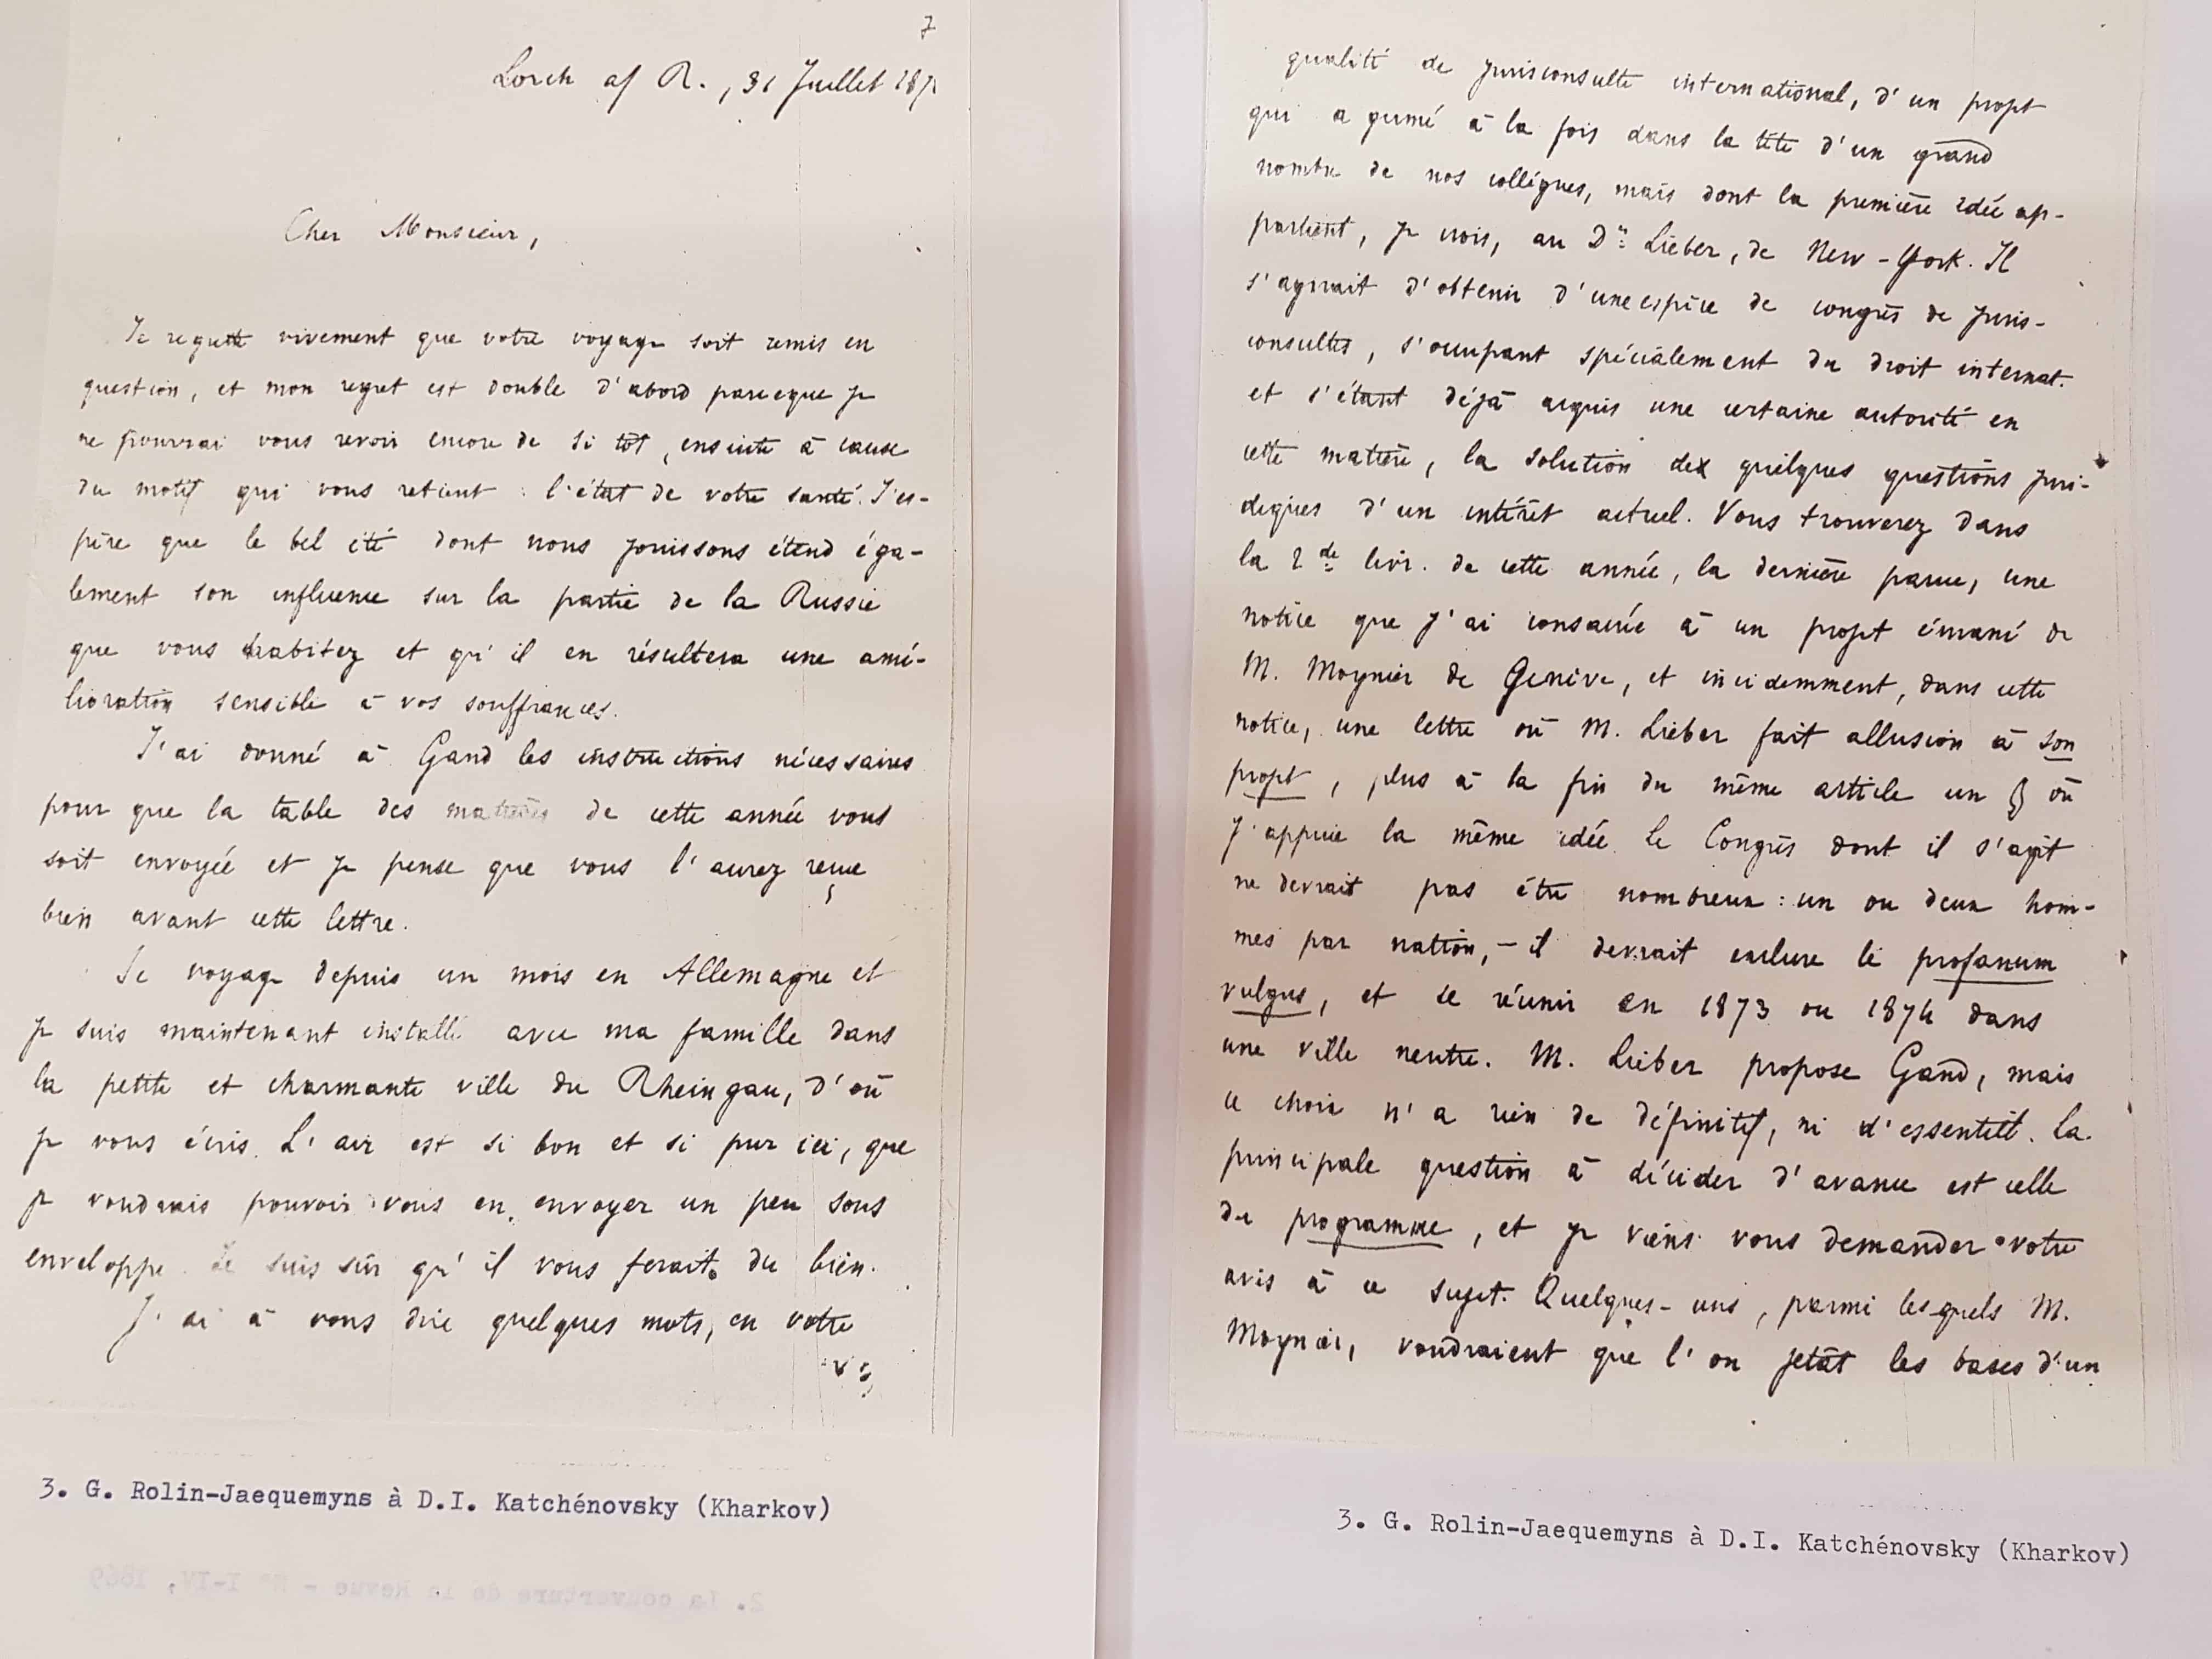 7
Lorch a/ R., 31 Juillet 187
Cher Monsieur,
Je regrette vivement que votre voyage soit remis en
question, et mon regret est double d'abord parceque je
ne pourrai vous revoir encore de si tôt, ensuite à cause
du motif qui vous retient : l'état de votre santé. J'es-
père que le bel été dont nous jouissons étend éga-
lement son influence sur la partie de la Russie
que vous habitez et qu'il en résultera une amé-
lioration sensible à vos souffrances.
J'ai donné à Gand les instructions nécessaires
pour que la table des matières de cette année vous
soit envoyée et je pense que vous l'aurez reçue
bien avant cette lettre.
Je voyage depuis un mois en Allemagne et
je suis maintenant installé avec ma famille dans
la petite et charmante ville du Rheingau, d'où
je vous écris. L'air est si bon et si pur ici, que
je voudrais pouvoir vous en envoyer un peu sous
enveloppe. Je suis sûr qu'il vous ferait du bien.
J'ai à vous dire quelques mots, en votre
3. G. Rolin-Jaequemyns à D.I. Katchénovsky (Kharkov)
2. La couverture de la Revue - N° I-IV, 1869
qualité de jurisconsulte international, d'un projet
qui a germé à la fois dans la tête d'un grand
nombre de nos collègues, mais dont la première idée ap-
partient, je crois, au Dr Lieber, de New-York. Il
s'agirait d'obtenir d'une espèce de congrès de juris-
consultes, s'occupant spécialement du droit internat.
et s'étant déjà acquis une certaine autorité en
cette matière, la solution de quelques questions juri-
diques d'un intérêt actuel. Vous trouverez dans
la 2de livr. de cette année, la dernière parue, une
notice que j'ai consacrée à un projet émané de
M. Moynier de Genève, et incidemment, dans cette
notice, une lettre où M. Lieber fait allusion à son
projet, plus à la fin du même article un § où
j'appuie la même idée. Le Congrès dont il s'agit
ne devrait pas être nombreux : un ou deux hom-
mes par nation, – il devrait exclure le profanum
vulgus, et se réunir en 1873 ou 1874 dans
une ville neutre. M. Lieber propose Gand, mais
ce choix n'a rien de définitif, ni d'essentiel. La
principale question à décider d'avance est celle
du programme, et je viens vous demander votre
avis à ce sujet. Quelques-uns, parmi lesquels M.
Moynier, voudraient que l'on jetât les bases d'un
3. G. Rolin-Jaequemyns à D.I. Katchénovsky (Kharkov)